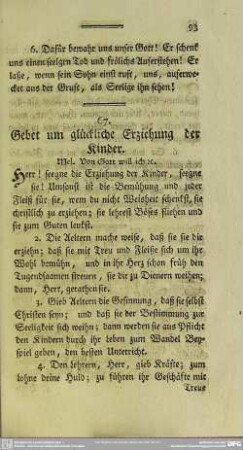 93
6. Dafür bewahr uns unser Gott! Er schenk
uns einen selgen Tod und frölichs Auferstehen! Er
laße, wenn sein Sohn einst ruft, uns, auferwe-
cket aus der Gruft, als Seelige ihn sehen!
67.
Gebet um glückliche Erziehung der
Kinder.
Mel. Von Gott will ich ꝛc.
Herr! seegne die Erziehung der Kinder, seegne
sie! Umsonst ist die Bemühung und jeder
Fleiß für sie, wenn du nicht Weisheit schenkst, sie
christlich zu erziehen; sie lehrest Böses fliehen und
sie zum Guten lenkst.
2. Die Aeltern mache weise, daß sie sie dir
erziehn; daß sie mit Treu und Fleiße sich um ihr
Wohl bemühn, und in ihr Herz schon früh den
Tugendsaamen streuen, sie dir zu Dienern weihen;
dann, Herr, gerathen sie.
3. Gieb Aeltern die Gesinnung, daß sie selbst
Christen seyn; und daß sie der Bestimmung zur
Seeligkeit sich weihn; dann werden sie aus Pflicht
den Kindern durch ihr Leben zum Wandel Bey-
spiel geben, den besten Unterricht.
4. Den Lehrern, Herr, gieb Kräfte; zum
Lohne deine Huld; zu führen ihr Geschäfte mit
Treue